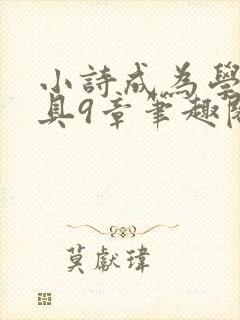 小詩成為學
具9章筆趣閣
莫獻瑋